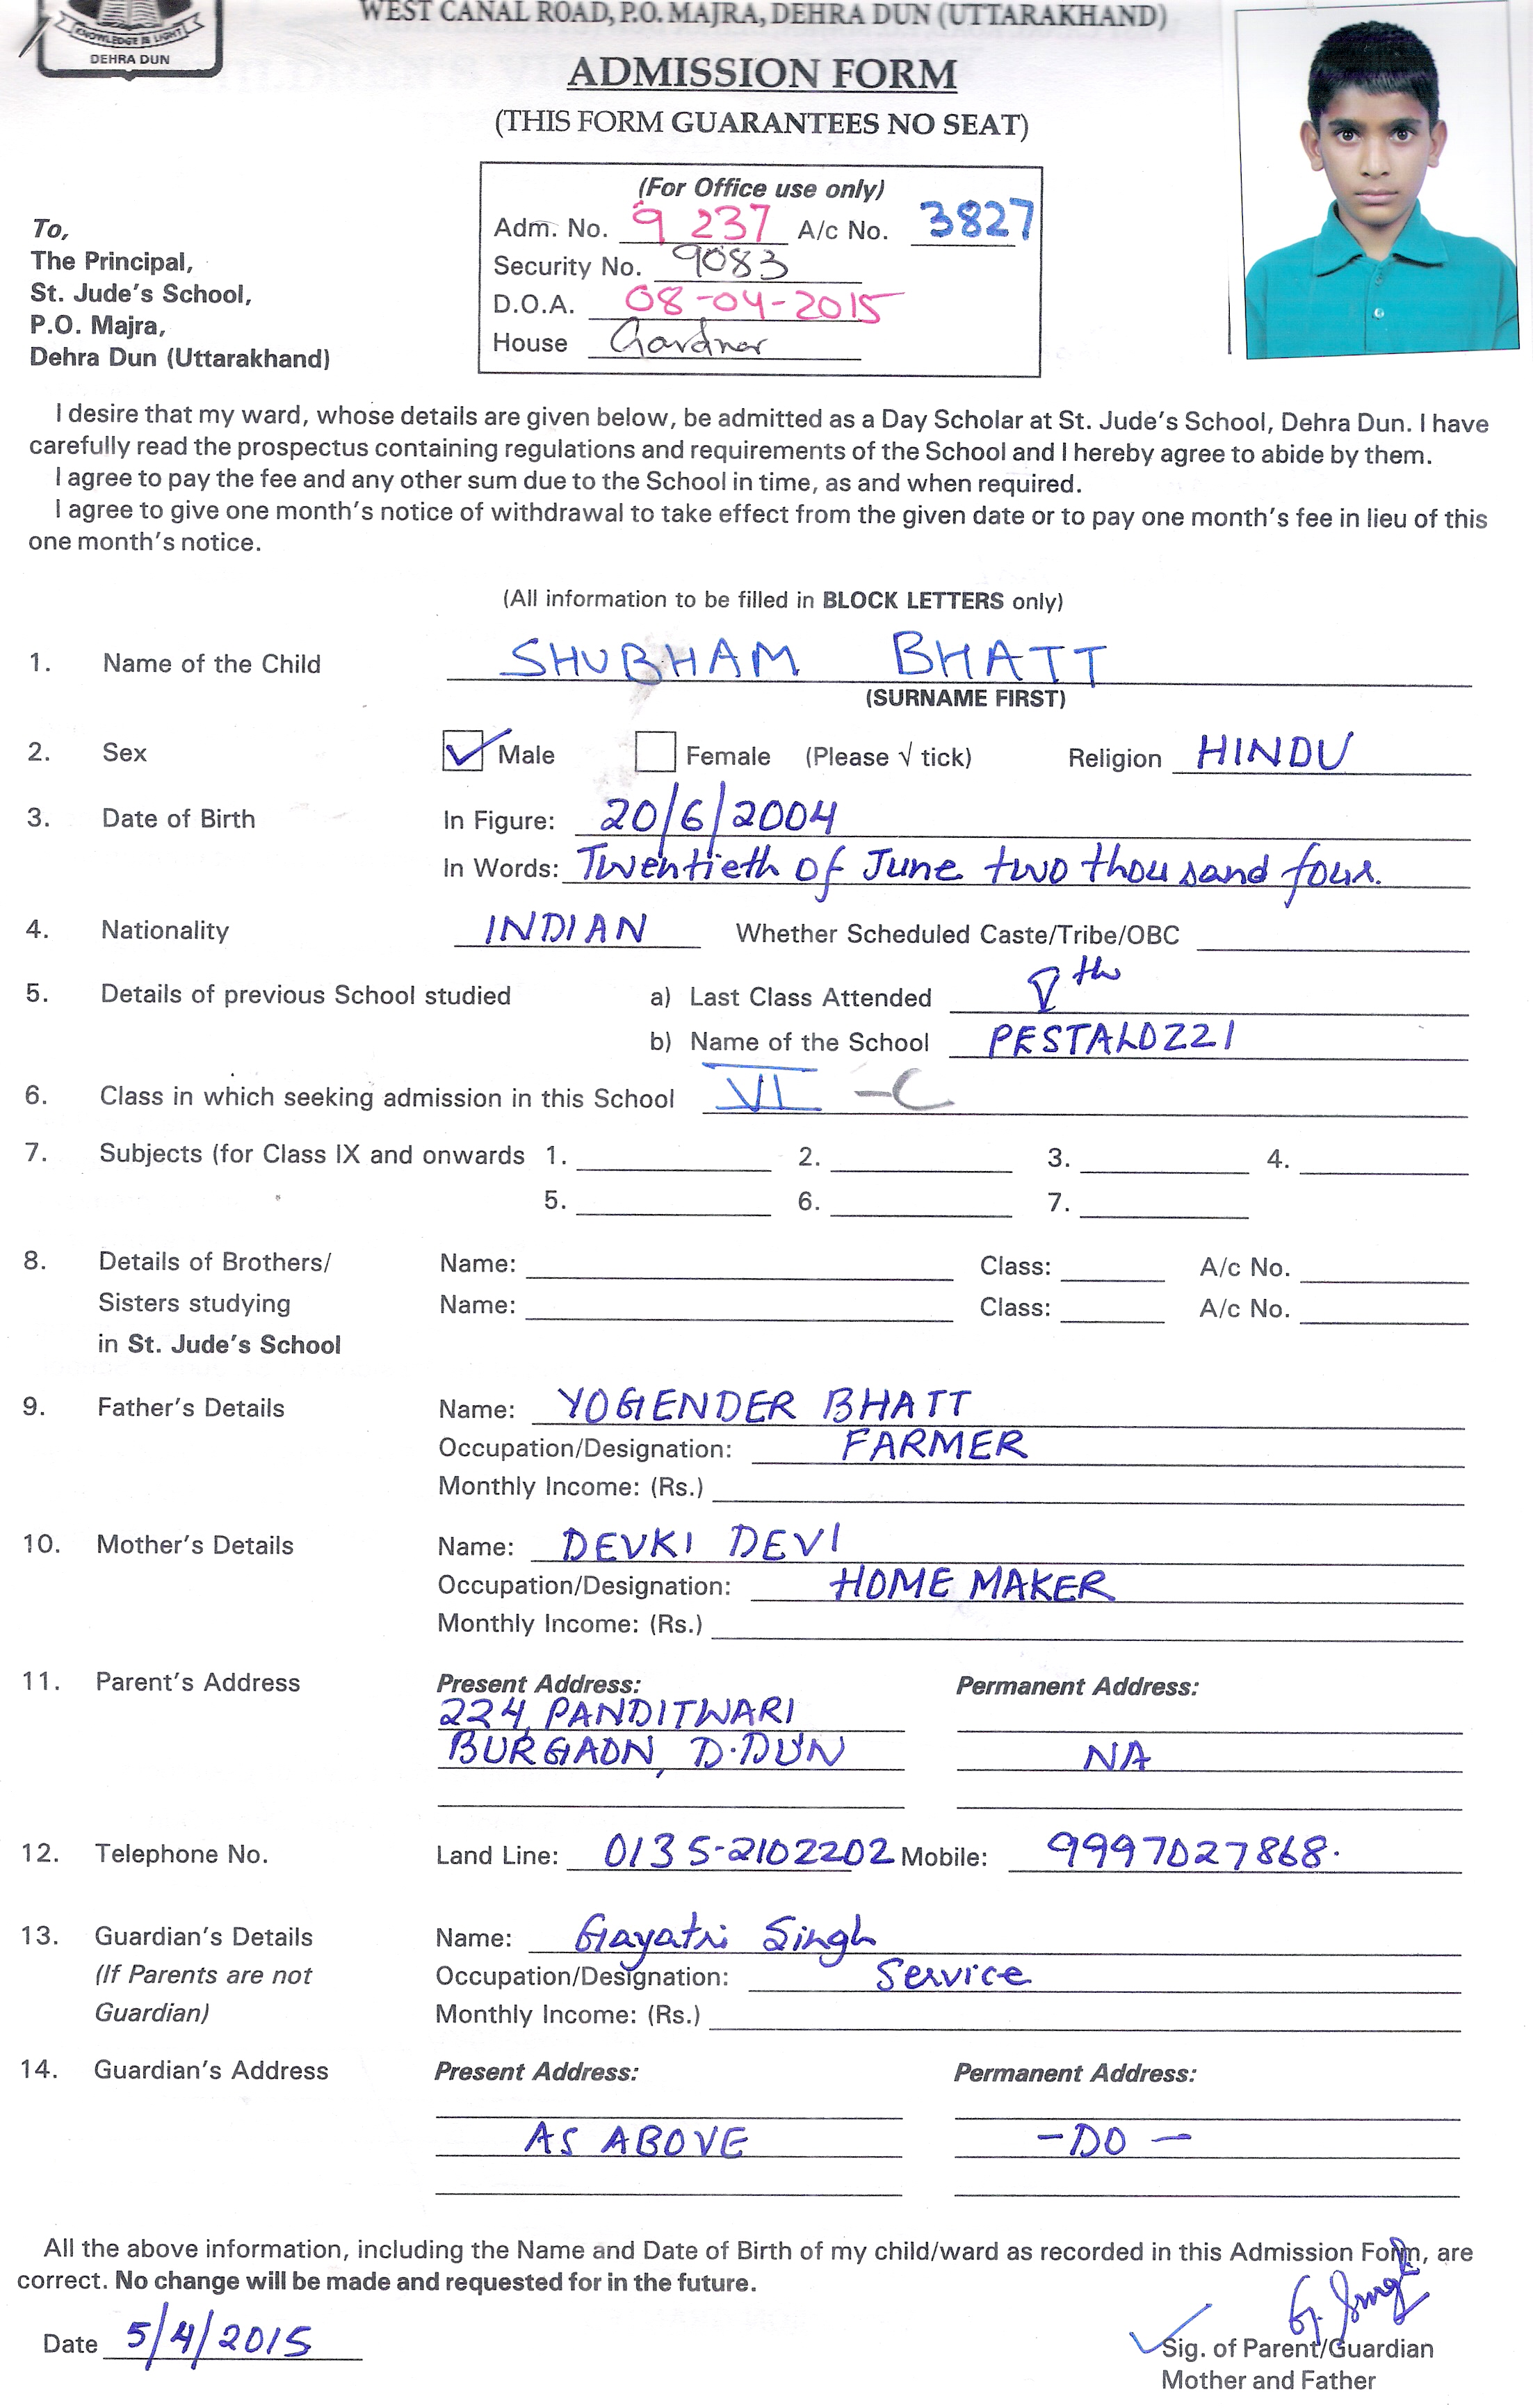 KNOWLEDGE IS LIGHT
DEHRA DUN
WEST CANAL ROAD, P.O. MAJRA, DEHRA DUN (UTTARAKHAND)
ADMISSION FORM
(THIS FORM GUARANTEES NO SEAT)
(For Office use only)
Adm. No. 9237 A/c No. 3827
Security No. 9083
D.O.A. 08-04-2015
House Gardner
To,
The Principal,
St. Jude's School,
P.O. Majra,
Dehra Dun (Uttarakhand)
I desire that my ward, whose details are given below, be admitted as a Day Scholar at St. Jude's School, Dehra Dun. I have
carefully read the prospectus containing regulations and requirements of the School and I hereby agree to abide by them.
I agree to pay the fee and any other sum due to the School in time, as and when required.
I agree to give one month's notice of withdrawal to take effect from the given date or to pay one month's fee in lieu of this
one month's notice.
(All information to be filled in BLOCK LETTERS only)
1. Name of the Child SHUBHAM BHATT
(SURNAME FIRST)
2. Sex Male Female (Please √ tick) Religion HINDU
3. Date of Birth In Figure: 20/6/2004
In Words: Twentieth of June two thousand four.
4. Nationality INDIAN Whether Scheduled Caste/Tribe/OBC
5. Details of previous School studied a) Last Class Attended Vth
b) Name of the School PESTALOZZI
6. Class in which seeking admission in this School VI -C
7. Subjects (for Class IX and onwards 1. 2. 3. 4.
5. 6. 7.
8. Details of Brothers/ Name: Class: A/c No.
Sisters studying Name: Class: A/c No.
in St. Jude's School
9. Father's Details Name: YOGENDER BHATT
Occupation/Designation: FARMER
Monthly Income: (Rs.)
10. Mother's Details Name: DEVKI DEVI
Occupation/Designation: HOME MAKER
Monthly Income: (Rs.)
11. Parent's Address Present Address: Permanent Address:
224, PANDITWARI
BURGAON, D.DUN NA
12. Telephone No. Land Line: 0135-2102202 Mobile: 9997027868.
13. Guardian's Details Name: Gayatri Singh
(If Parents are not Occupation/Designation: Service
Guardian) Monthly Income: (Rs.)
14. Guardian's Address Present Address: Permanent Address:
AS ABOVE -DO-
All the above information, including the Name and Date of Birth of my child/ward as recorded in this Admission Form, are
correct. No change will be made and requested for in the future.
G. Singh
Date 5/4/2015 Sig. of Parent/Guardian
Mother and Father